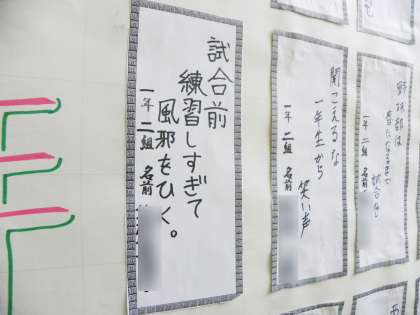 試合前
練習しすぎて
風邪をひく。
一年 二組 名前
聞こえるな
一年生から
笑い声
一年 二組 名前
野球部は
試合で
一年 二組 名前